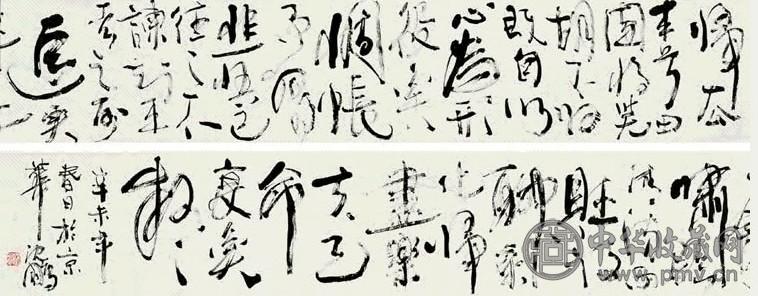 歸去
来兮田
園将蕪
胡不歸
既自以
心為形
役奚
惆悵
而獨
悲悟已
往之不
諫知来
者之可
追實
嘯
清流
賦詩
聊乘
化歸
盡樂
夫天
命
復奚
疑
辛未年
春日於京
華
中华收藏网
www.pmv.cn